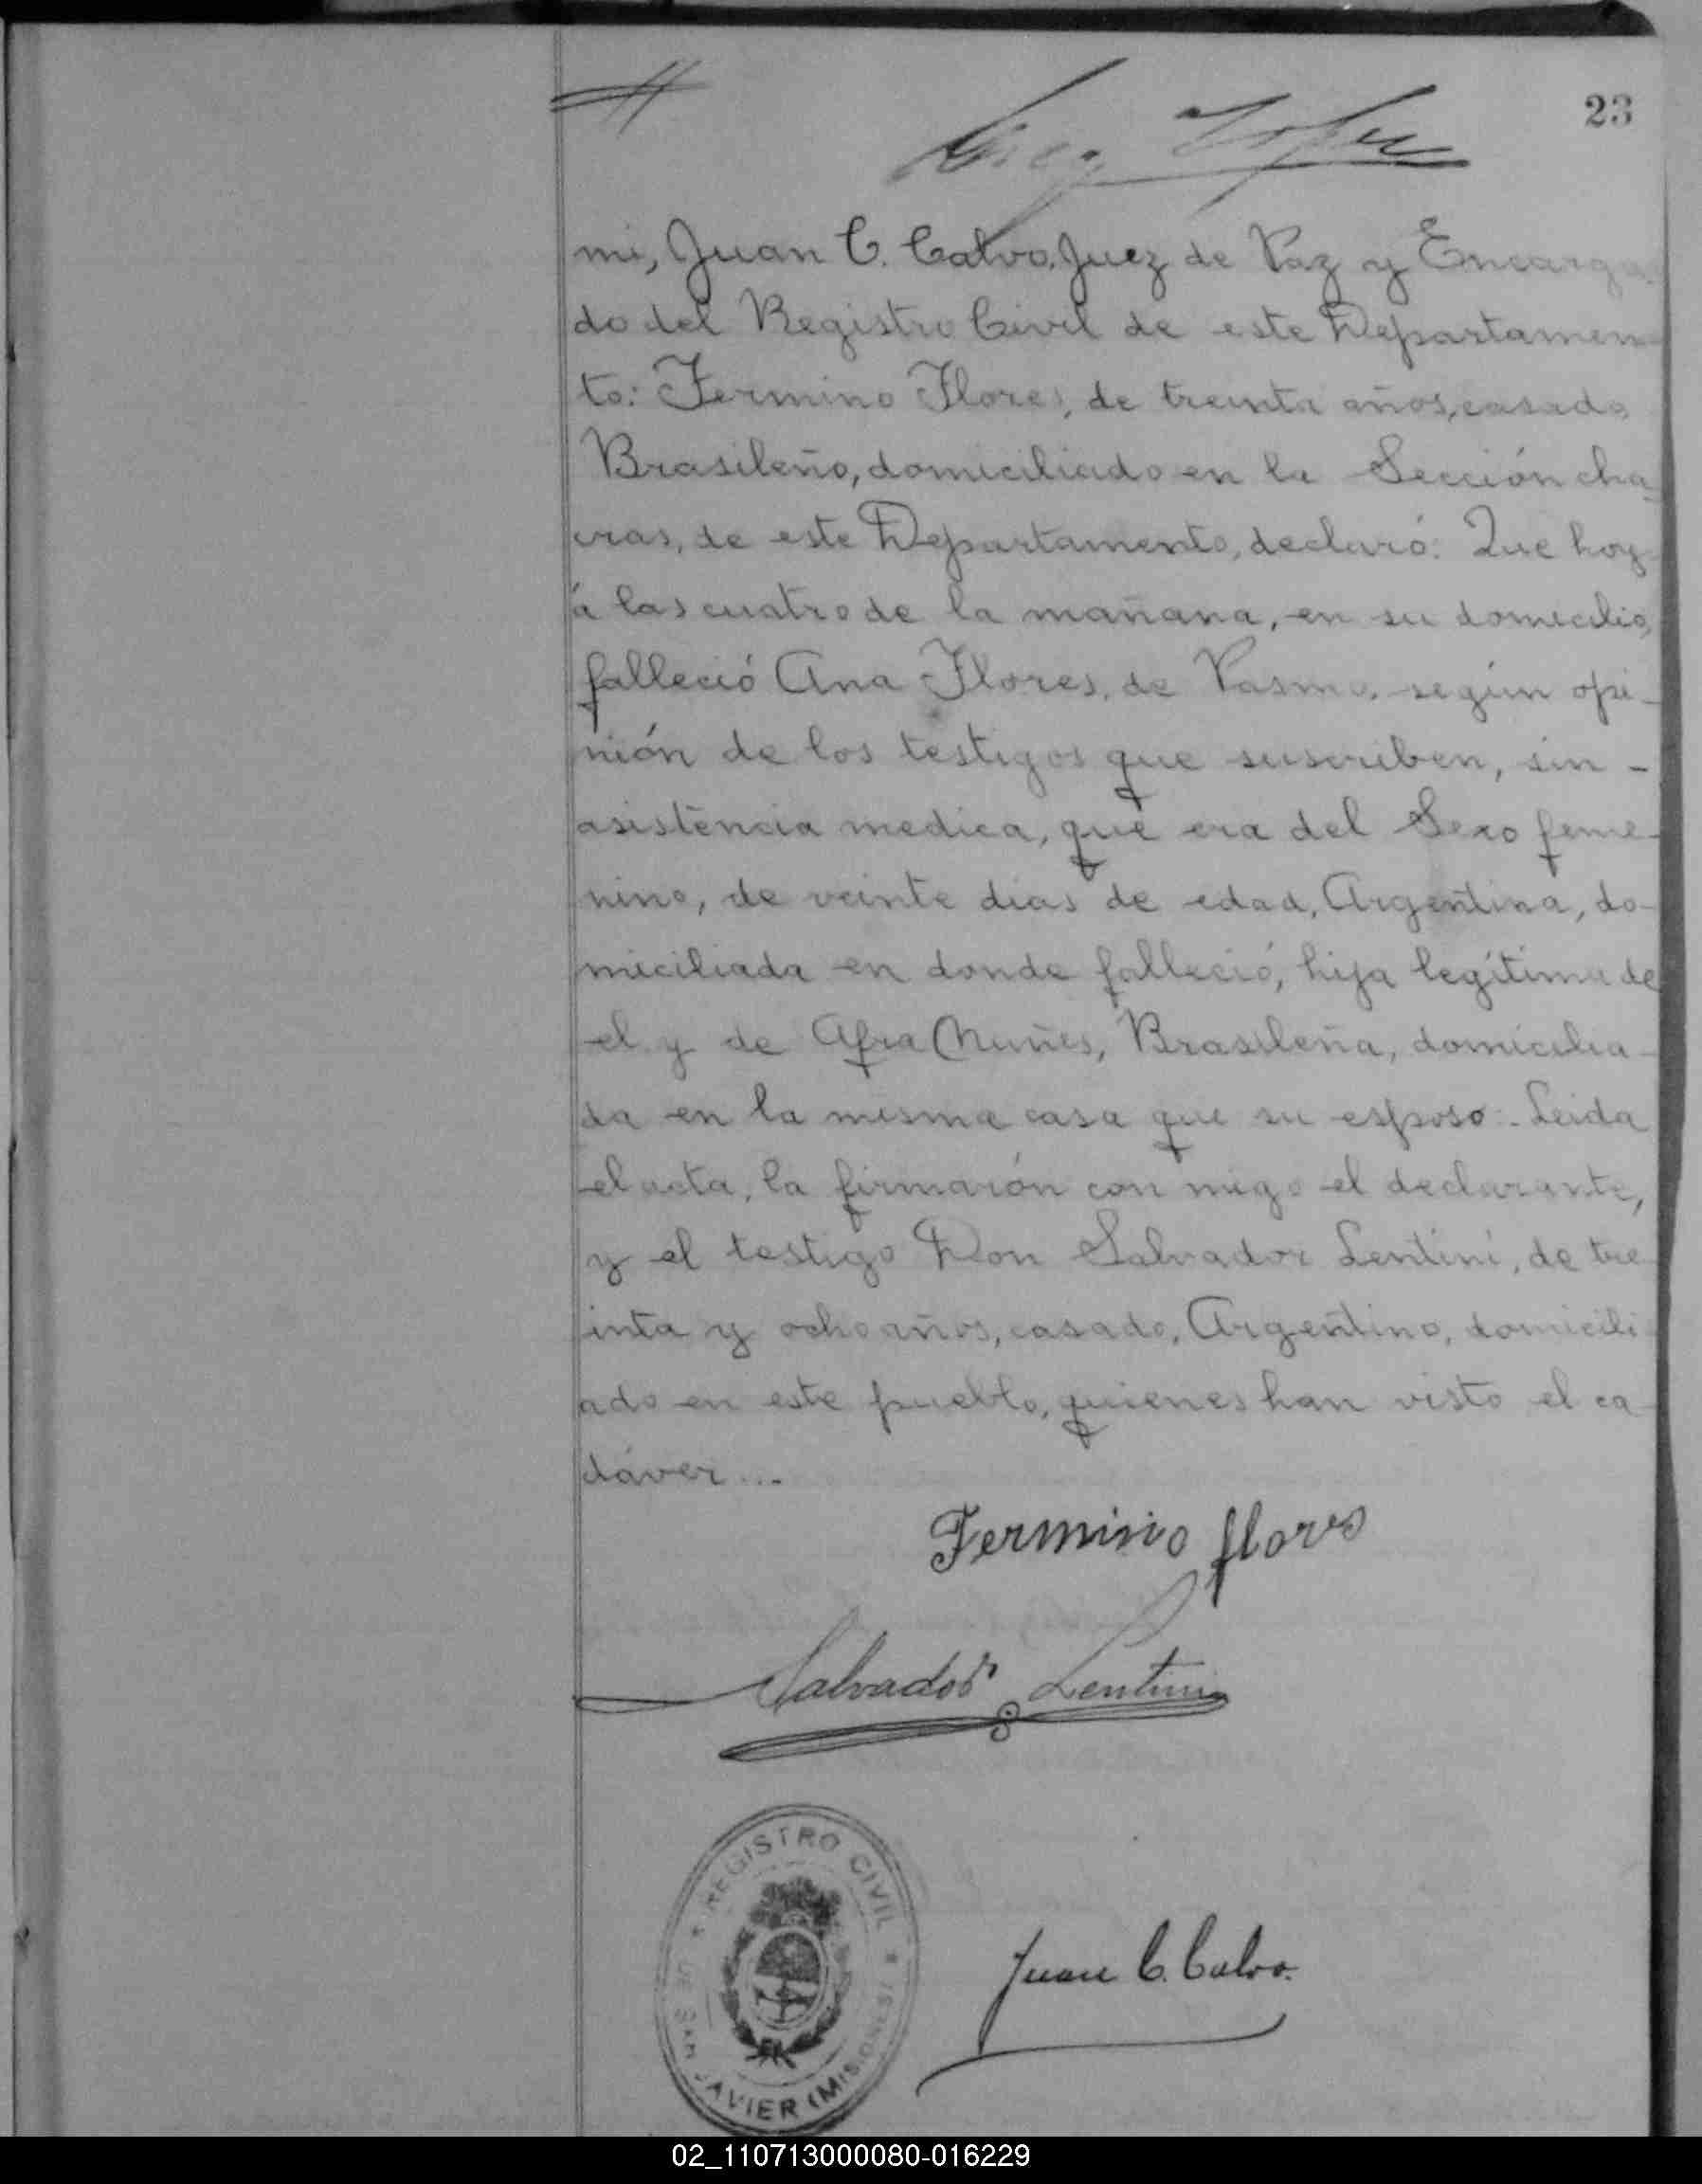 23
mi, Juan C. Calvo, Juez de Paz y Encarga-
do del Registro Civil de este Departamen-
to: Fermino Flores, de treinta años, casado,
Brasileño, domiciliado en la Sección cha-
cras, de este Departamento, declaró: Que hoy
á las cuatro de la mañana, en su domicilio,
falleció Ana Flores, de Pasmo, según opi-
nión de los testigos que suscriben, sin -
asistencia medica, que era del Sexo feme-
nino, de veinte dias de edad, Argentina, do-
miciliada en donde falleció, hija legítima de
el y de Afra Nuñes, Brasileña, domicilia-
da en la misma casa que su esposo:- Leida
el acta, la firmarón con migo el declarante,
y el testigo Don Salvador Lentini, de tre
inta y ocho años, casado, Argentino, domicili
ado en este pueblo, quienes han visto el ca-
dáver...
Fermino flores
Salvador Lentini
REGISTRO CIVIL
DE SAN JAVIER (MISIONES)
Juan C. Calvo.
02_110713000080-016229